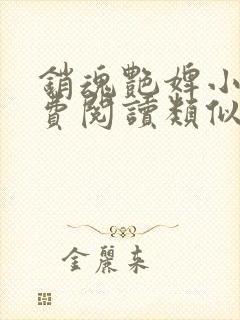 銷魂艷婢小
費閱讀類似
金麗來